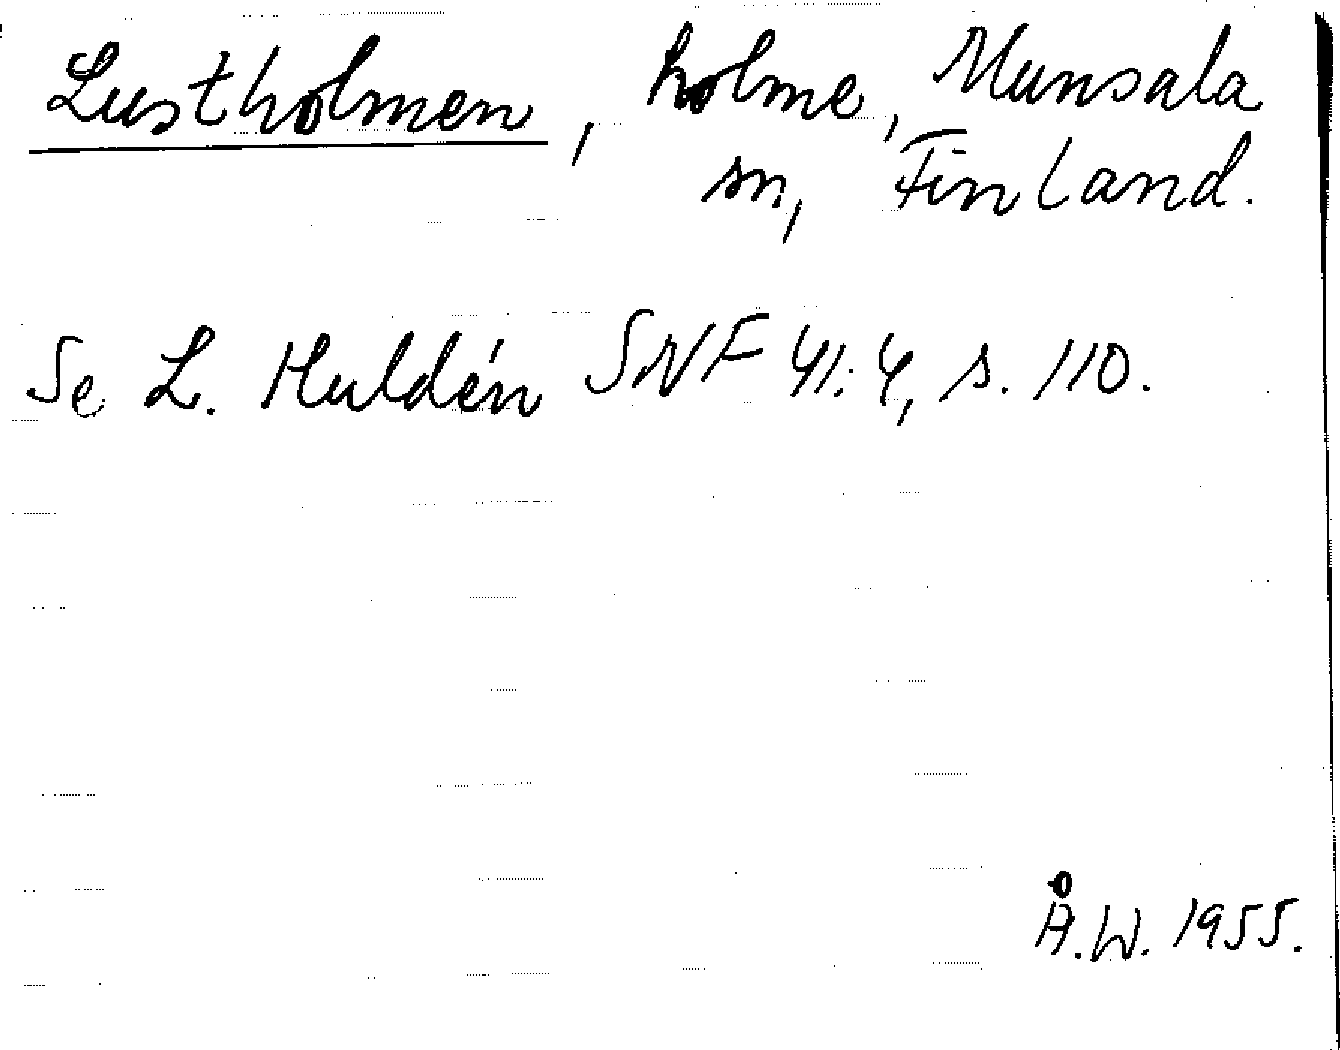 Lustholmen, holme, Munsala
sn, Finland.
Se L. Huldén SNF 41:4, s. 110.
Å.W. 1955.